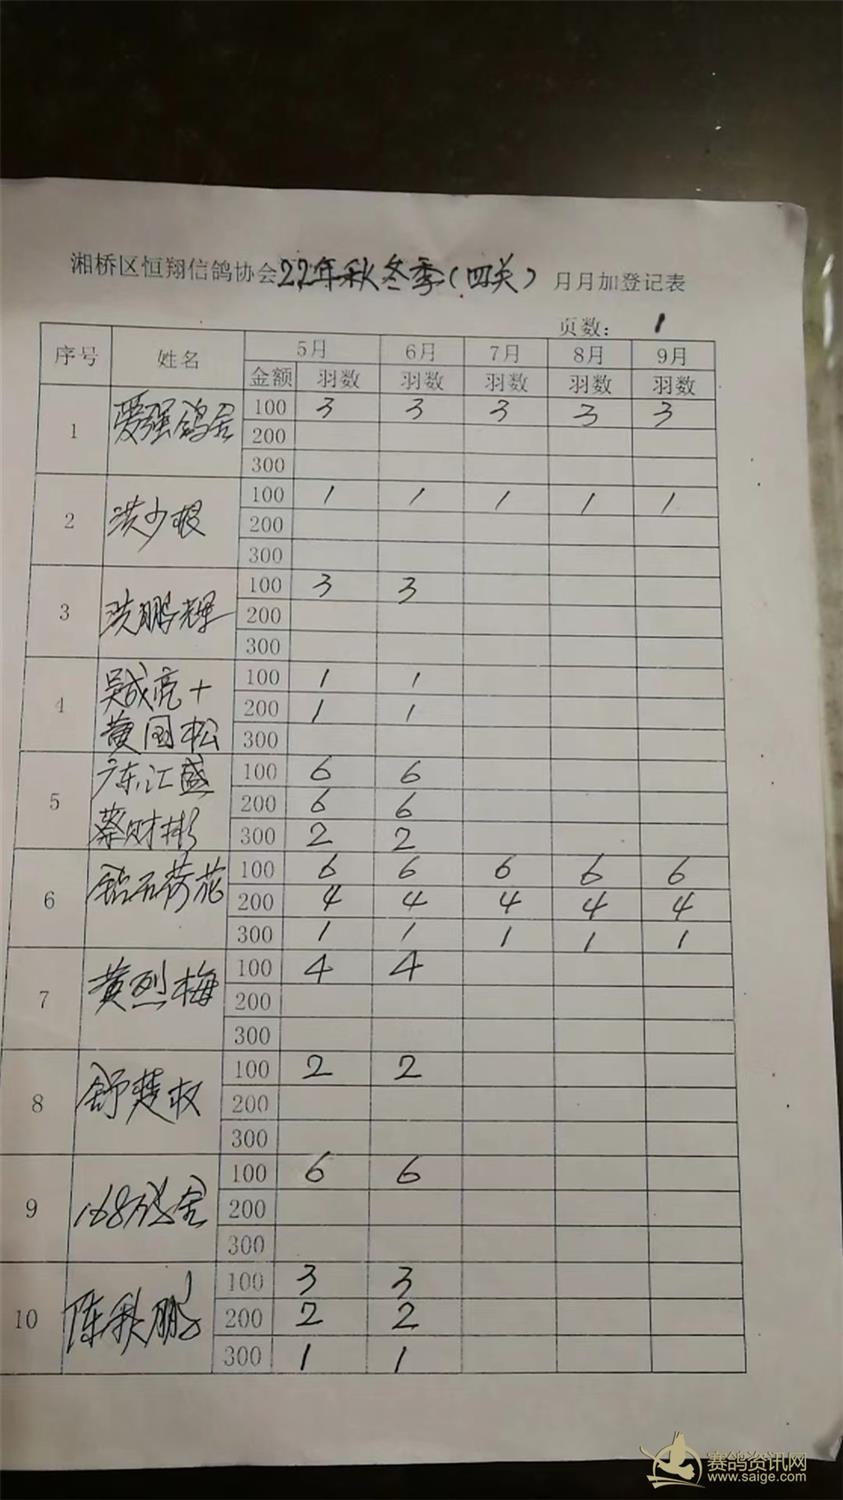 湘桥区恒翔信鸽协会22年秋冬季(四关) 月月加登记表
页数: 1
序号 姓名 5月 6月 7月 8月 9月
金额 羽数 羽数 羽数 羽数 羽数
1 爱强鸽舍 100 3 3 3 3 3
200
300
2 洪少根 100 1 1 1 1 1
200
300
3 洪鹏辉 100 3 3
200
300
4 吴成亮+ 100 1 1
黄国松 200 1 1
300
5 广东汇盛 100 6 6
200 6 6
蔡财彬 300 2 2
6 钻石荷花 100 6 6 6 6 6
200 4 4 4 4 4
300 1 1 1 1 1
7 黄烈梅 100 4 4
200
300
8 舒楚权 100 2 2
200
300
9 168鸽舍 100 6 6
200
300
10 陈秋鹏 100 3 3
200 2 2
300 1 1
赛鸽资讯网
www.saige.com